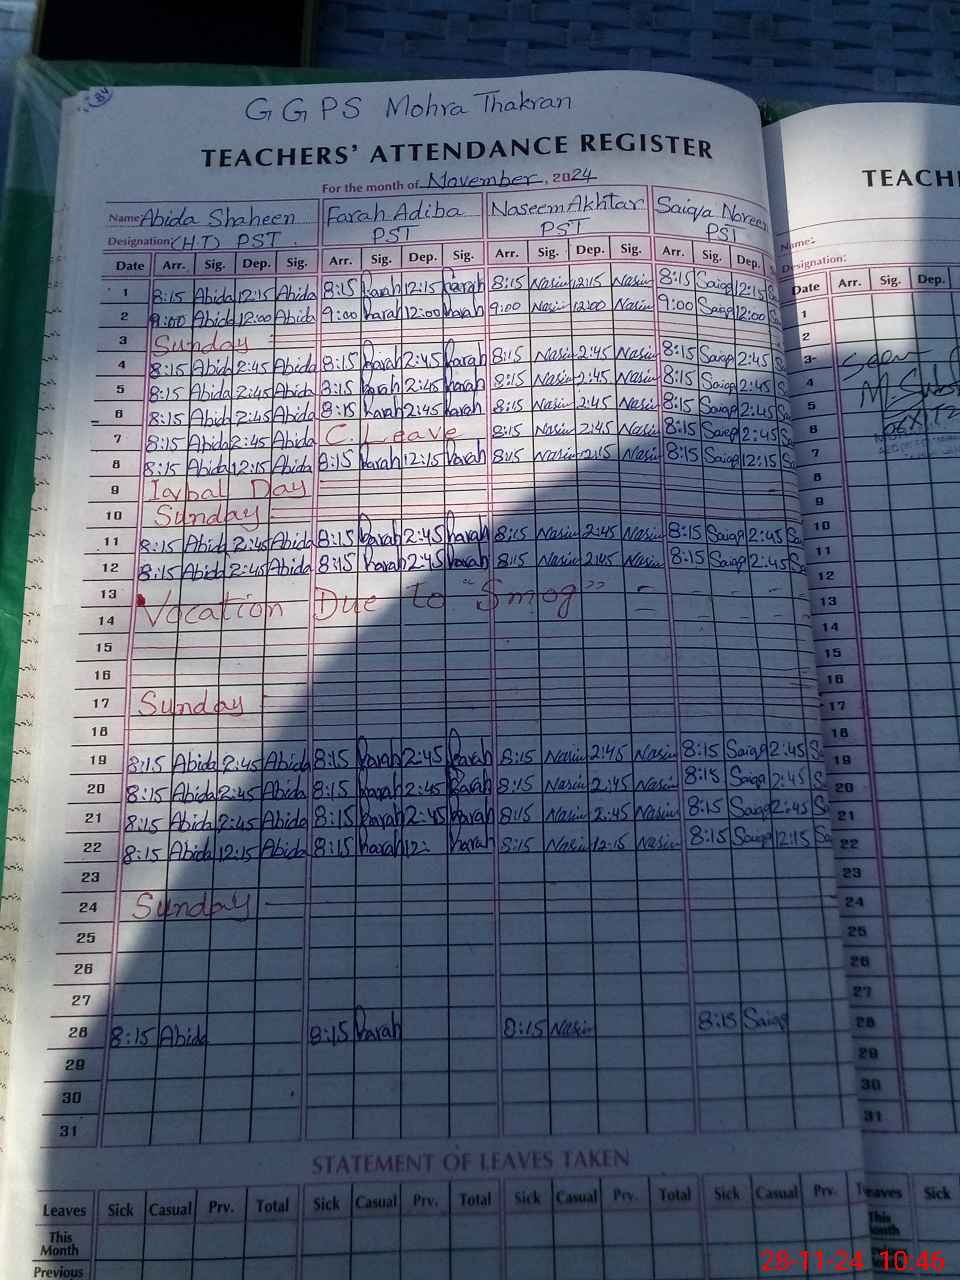 84
G G P S Mohra Thakran
TEACHERS' ATTENDANCE REGISTER
For the month of November, 2024
Name Abida Shaheen Farah Adiba Naseem Akhtar Saiqa Noreen
Designation: (H.T) PST PST PST PST
Date Arr. Sig. Dep. Sig. Arr. Sig. Dep. Sig. Arr. Sig. Dep. Sig. Arr. Sig. Dep.
1 8:15 Abida 12:15 Abida 8:15 Farah 12:15 Farah 8:15 Nasim 12:15 Nasim 8:15 Saiqa 12:15
2 9:00 Abida 12:00 Abida 9:00 Farah 12:00 Farah 9:00 Nasim 12:00 Nasim 9:00 Saiqa 12:00
3 Sunday
4 8:15 Abida 2:45 Abida 8:15 Farah 2:45 Farah 8:15 Nasim 2:45 Nasim 8:15 Saiqa 2:45
5 8:15 Abida 2:45 Abida 8:15 Farah 2:45 Farah 8:15 Nasim 2:45 Nasim 8:15 Saiqa 2:45
6 8:15 Abida 2:45 Abida 8:15 Farah 2:45 Farah 8:15 Nasim 2:45 Nasim 8:15 Saiqa 2:45
7 8:15 Abida 2:45 Abida C. Leave 8:15 Nasim 2:45 Nasim 8:15 Saiqa 2:45
8 8:15 Abida 12:15 Abida 8:15 Farah 12:15 Farah 8:15 Nasim 12:15 Nasim 8:15 Saiqa 12:15
9 Iqbal Day
10 Sunday
11 8:15 Abida 2:45 Abida 8:15 Farah 2:45 Farah 8:15 Nasim 2:45 Nasim 8:15 Saiqa 2:45
12 8:15 Abida 2:45 Abida 8:15 Farah 2:45 Farah 8:15 Nasim 2:45 Nasim 8:15 Saiqa 2:45
13
14 Vocation Due to "Smog"
15
16
17 Sunday
18
19 8:15 Abida 2:45 Abida 8:15 Farah 2:45 Farah 8:15 Nasim 2:45 Nasim 8:15 Saiqa 2:45
20 8:15 Abida 2:45 Abida 8:15 Farah 2:45 Farah 8:15 Nasim 2:45 Nasim 8:15 Saiqa 2:45
21 8:15 Abida 2:45 Abida 8:15 Farah 2:45 Farah 8:15 Nasim 2:45 Nasim 8:15 Saiqa 2:45
22 8:15 Abida 12:15 Abida 8:15 Farah 12: Farah 8:15 Nasim 12:15 Nasim 8:15 Saiqa 12:15
23
24 Sunday
25
26
27
28 8:15 Abida 8:15 Farah 8:15 Nasim 8:15 Saiqa
29
30
31
STATEMENT OF LEAVES TAKEN
Leaves Sick Casual Prv. Total Sick Casual Prv. Total Sick Casual Prv. Total Sick Casual Prv.
This Month
Previous
TEACH
Name:
Designation:
Date Arr. Sig. Dep.
1
2
3 Seen
4
5
6
7
8
9
10
11
12
13
14
15
16
17
18
19
20
21
22
23
24
25
26
27
28
29
30
31
Leaves Sick
This
28-11-24 10:46